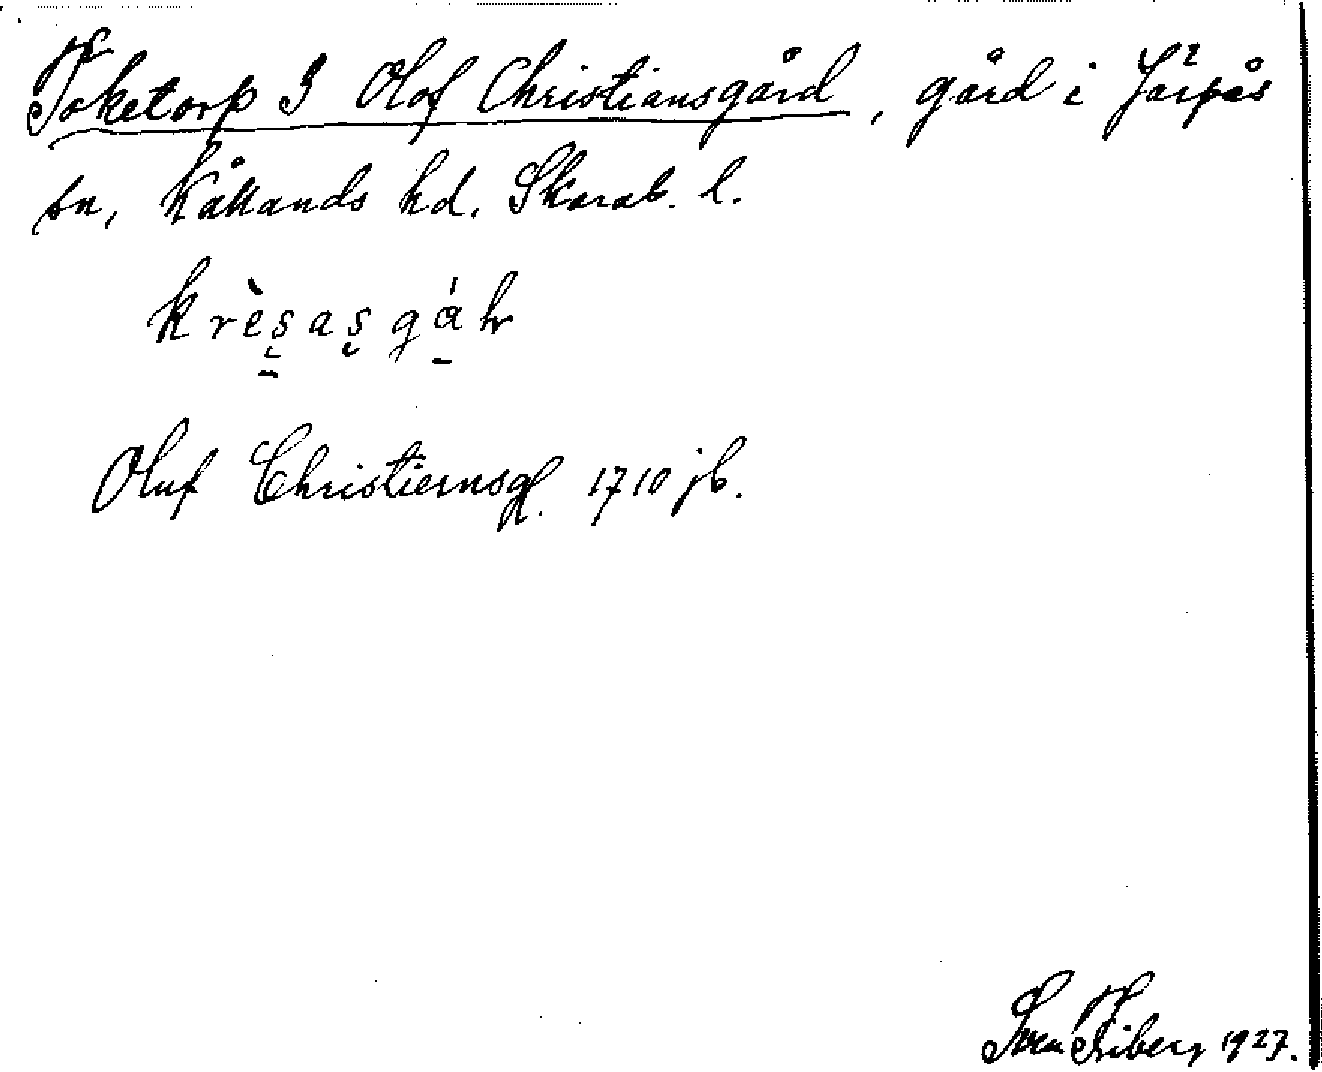 Toketorp 3 Olof Christiansgård, gård i Järpås
sn, Kållands hd. Skarab. l.
krèsasgáh
Oluf Christiernsg. 1710 jb.
Sven Friberg 1927.